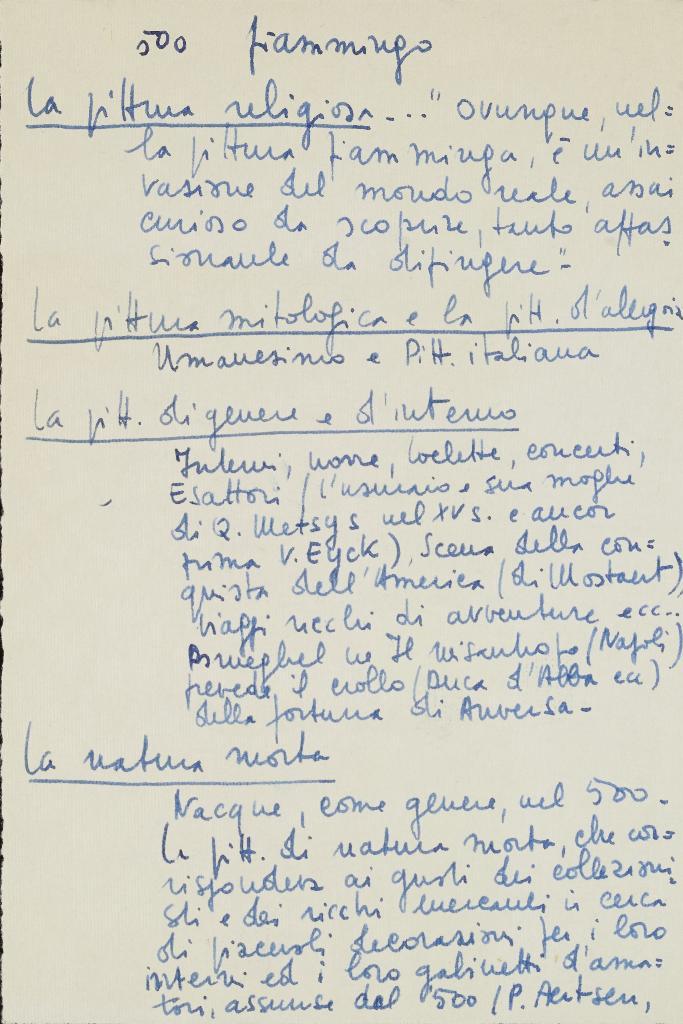 500 fiammingo
La pittura religiosa -..." Ovunque, nel=
la pittura fiamminga, è un'in=
vasione del mondo reale, assai
curioso da scoprire, tanto affas=
sionante da dipingere"-
La pittura mitologica e la pitt. d'allegoria
Umanesimo e Pitt. italiana
La pitt. di genere e d'interno
Interni, nozze, toelette, concerti,
Esattori (l'usuraio e sua moglie
di Q. Metsys nel XV s. e ancor
prima V. Eyck), Scena della con=
quista dell'America (di Mostaert),
viaggi ricchi di avventure ecc...
Brueghel ne Il misantropo (Napoli)
prevede il crollo (Duca d'Alba ecc)
della fortuna di Anversa-
La natura morta
Nacque, come genere, nel 500-
La pitt. di natura morta, che cor=
rispondeva ai gusti dei collezioni=
sti e dei ricchi mercanti in cerca
di piacevoli decorazioni per i loro
interni ed i loro gabinetti d'ama=
tori, assunse dal 500 (P. Aertsen,